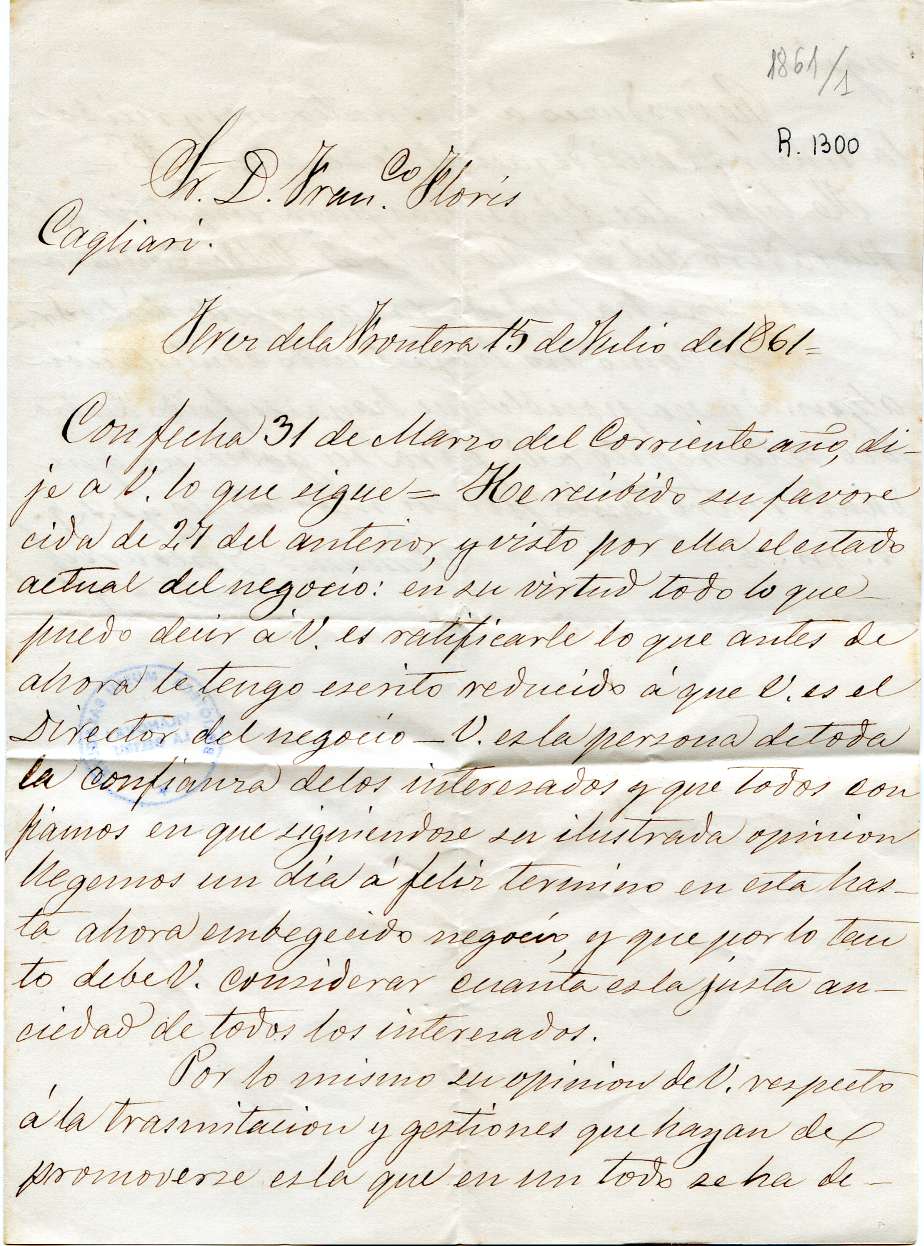 1861/1
R. 1300
Sr. D. Fran.co Floris
Cagliari.
Jerez dela Frontera 15 de Julio de 1861=
Con fecha 31 de Marzo del Corriente año, di-
je á V. lo que sigue = He recibido su favore
cida de 27 del anterior, y visto por ella el estado
actual del negocio: en su virtud todo lo que
puedo decir á V. es ratificarle lo que antes de
ahora le tengo escrito reducido á que V. es el
Director del negocio — V. es la persona de toda
la confianza delos interesados y que todos con
fiamos en que siguiendose su ilustrada opinion
llegemos un dia á feliz termino en esta has-
ta ahora embegecido negocio, y que por lo tan
to debe V. considerar cuanta es la justa an-
ciedad de todos los interesados.
Por lo mismo su opinion de V. respecto
á la trasmitacion y gestiones que hayan de
promoverse es la que en un todo se ha de-